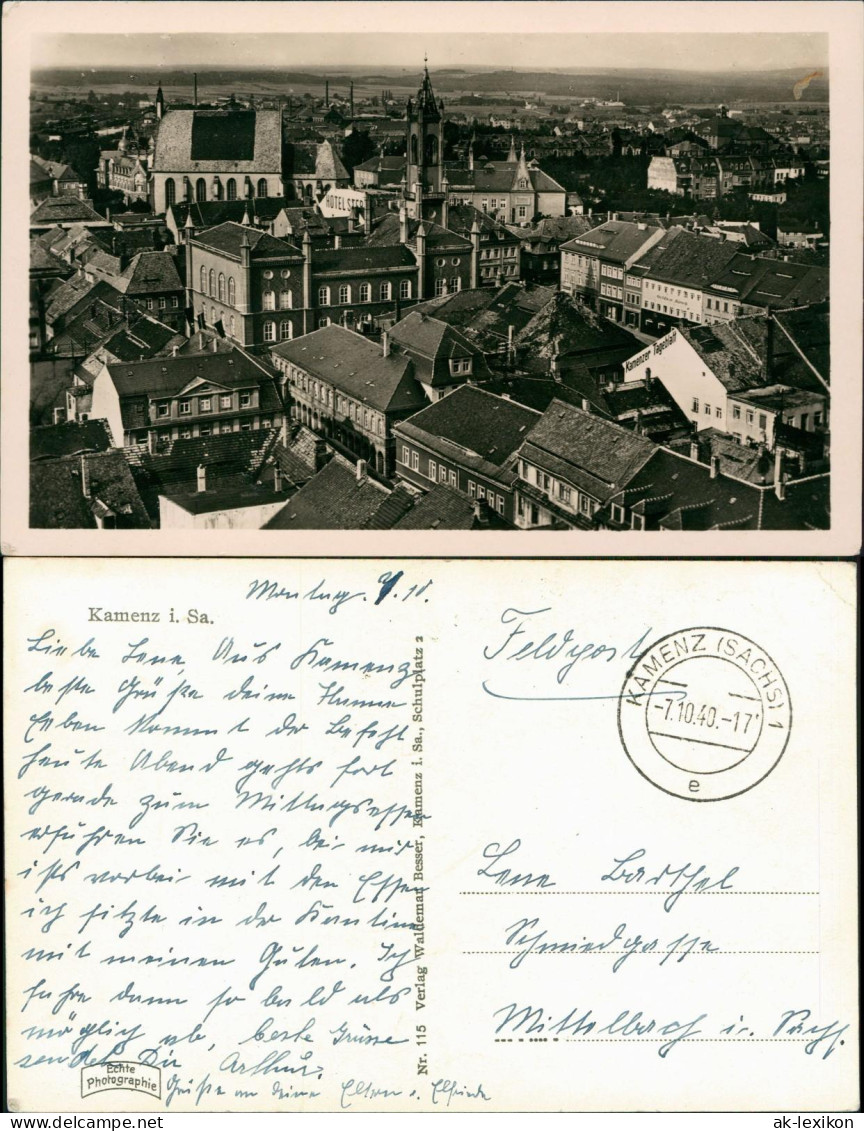 HOTEL STER
Kamenzer Tageblatt
Kamenz i. Sa.
Montag. 7.10.
Liebe Lene, Aus Kamenz
beste Grüße deine
Eben kommt der Befehl
heute Abend gehts fort
gerade zum Mittagessen
erfuhren Sie es, bei mir
ists vorbei mit den Essen
ich sitzte in der Kantine
mit meinen Guten. Ich
fahre dann so bald als
möglich ab, beste Grüsse
sendet Dir Arthur.
Grüße an deine Eltern u. Elfriede
Echte
Photographie
Nr. 115 Verlag Waldemar Besser, Kamenz i. Sa., Schulplatz 2
Feldpost
KAMENZ (SACHS) 1
-7.10.40.-17
e
Lene Barthel
Schmiedgasse
Mittelbach i. Sachs.
ak-lexikon